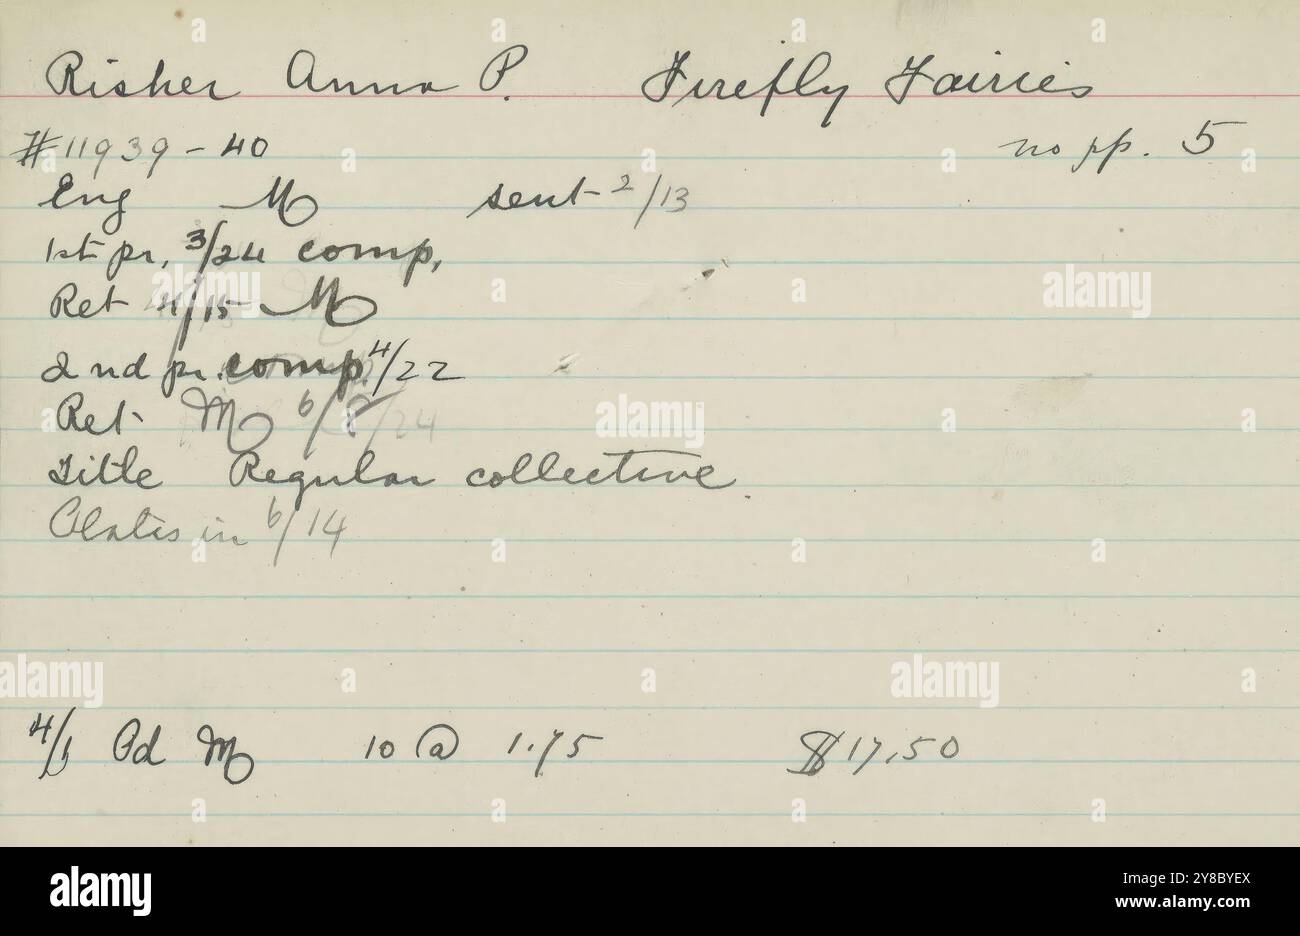 Risher Anna P. Firefly Fairies
#11939-40 no pp. 5
Eng M sent 2/13
1st pr. 3/24 comp.
Ret 4/15 M
2nd pr. comp. 4/22
Ret M 6/8
Title Regular collective.
Plates in 6/14
4/1 Pd M 10 @ 1.75 $17.50
alamy
Image ID: 2Y8BYEX
www.alamy.com